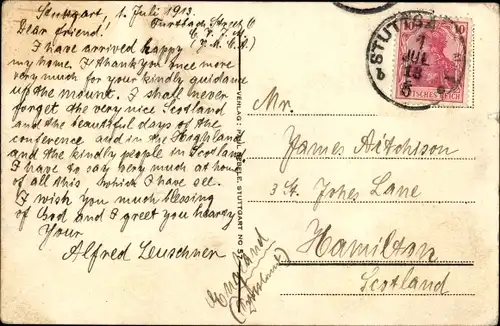 Stuttgart, 1. Juli 1913.
Dear friend!
C.V.J.M.
(Y.M.C.A.)
I have arrived happy
my home. I thank you once more
very much for your kindly guidance
up the mount. I shall never
forget the very nice Scotland
and the beautiful days of the
conference and in the Highland
and the kindly people in Scotland
I have to say very much at home
of all this, which I have see.
I wish you much blessing
of God and I greet you hearty
Your
Alfred Leuschner
STUTTGART
1
JUL
13
10
DEUTSCHES REICH
Mr.
James Aitchison
3 St. Johes Lane
Hamilton
Scotland
England